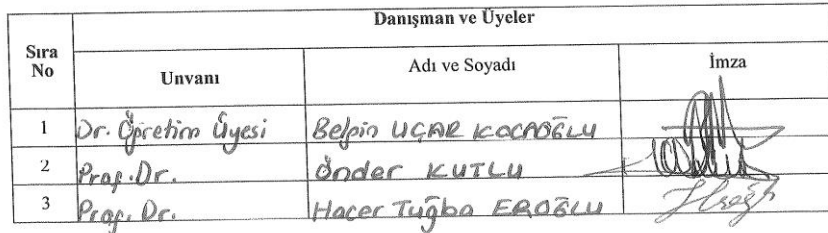 Danışman ve Üyeler
Sıra No Unvanı Adı ve Soyadı İmza
1 Dr. Öğretim Üyesi Belgin UÇAR KOCAOĞLU
2 Prof. Dr. Önder KUTLU
3 Prof. Dr. Hacer Tuğba EROĞLU